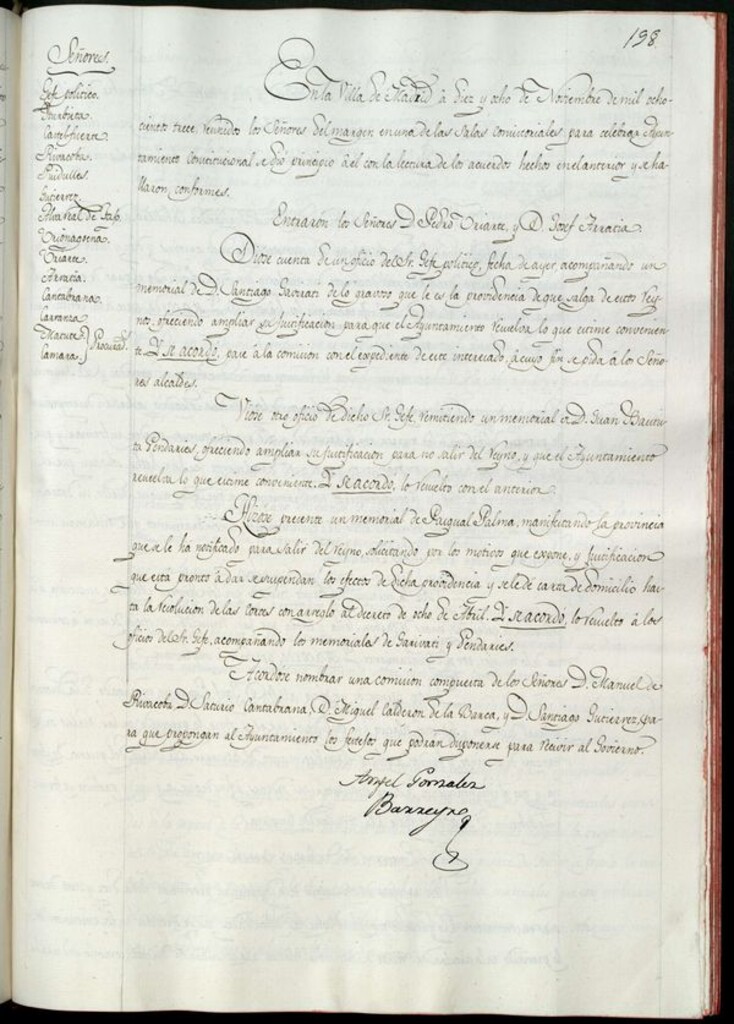 198
Señores.
Gefe politico.
Yturbieta
Castelfuerte.
Rivacoba.
Puidulles.
Gutierrez.
Alvareal de
Urionagoena.
Uriarte.
Arratia.
Cantabrana.
Carranza.
Matute.
Camara. } Procurad.s
En la Villa de Madrid à diez y ocho de Noviembre de mil ocho-
cientos trece reunidos los Señores del margen en una de las Salas Consistoriales para celebrar Ayun-
tamiento Constitucional se dio principio à el con la lectura de los acuerdos hechos en el anterior y se ha-
llaron conformes.
Entraron los Señores D. Pedro Uriarte, y D. Josef Arratia.
Diose cuenta de un oficio del Sr. Gefe politico, fecha de ayer, acompañando un
memorial de D. Santiago Garivati de lo gravoso que le es la providencia de que salga de estos Rey-
nos, ofreciendo ampliar su justificacion para que el Ayuntamiento resuelva lo que estime convenien-
te. Y se acordó, pase à la comision con el expediente de este interesado, à cuyo fin se pida à los Seño-
res alcaldes.
Viose otro oficio de dicho Sr. Gefe, remitiendo un memorial de D. Juan Bautis-
ta Pendaries, ofreciendo ampliar su justificacion para no salir del reyno, y que el Ayuntamiento
resuelva lo que estime conveniente. Y se acordó, lo resuelto con el anterior.
Hizose presente un memorial de Pasqual Palma, manifestando la providencia
que se le ha notificado para salir del reyno, solicitando por los motivos que expone, y justificacion
que está pronto à dar se suspendan los efectos de dicha providencia y se le dé carta de domicilio has-
ta la resolucion de las cortes con arreglo al decreto de ocho de Abril. Y se acordó, lo resuelto à los
oficios del Sr. Gefe, acompañando los memoriales de Garivati y Pendaries.
Acordose nombrar una comision compuesta de los Señores D. Manuel de
Rivacoba D. Saturio Cantabrana, D. Miguel Calderon de la Barca, y D. Santiago Gutierrez, pa-
ra que propongan al Ayuntamiento los festejos que podran disponerse para recivir al Govierno.
Angel Gonzalez
Barreyro